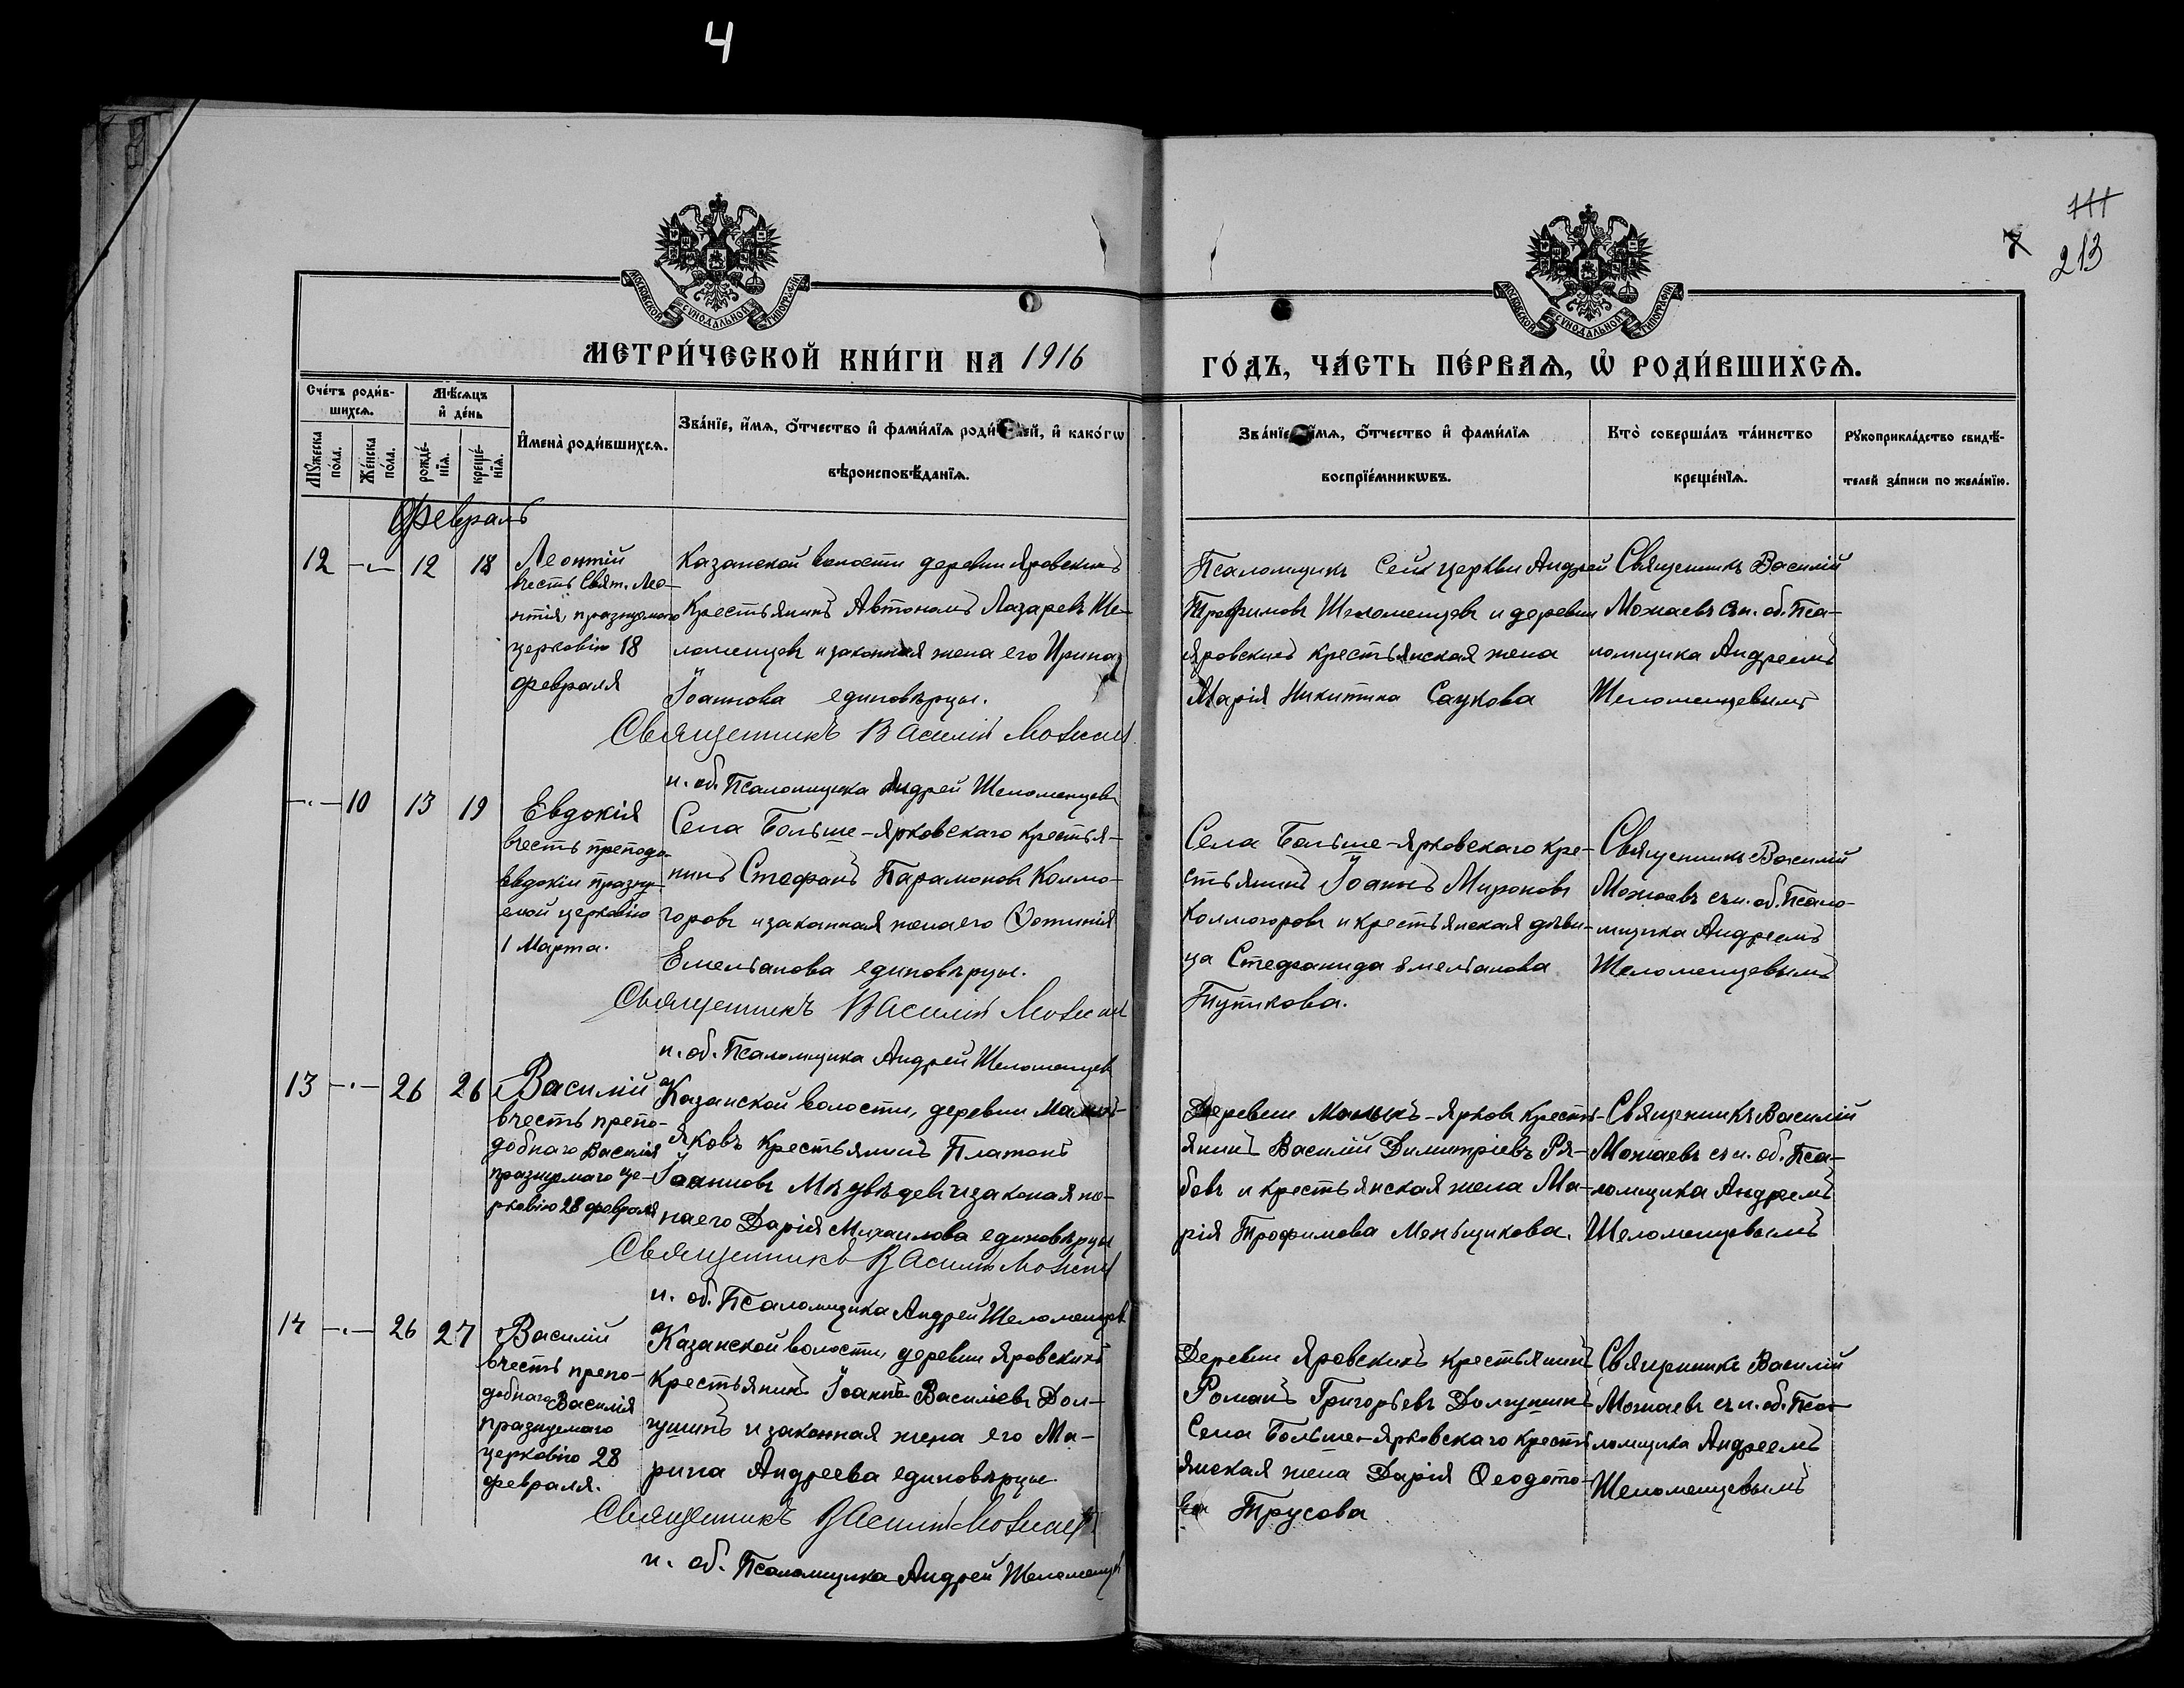 4
111
7
213
МОСКОВСКОЙ СѴНОДАЛЬНОЙ ТИПОГРАФІИ
МОСКОВСКОЙ СѴНОДАЛЬНОЙ ТИПОГРАФІИ
МЕТРИ́ЧЕСКОЙ КНИ́ГИ НА 1916
ГО́ДЪ, ЧА́СТЬ ПЕ́РВАѦ, Ѡ҆ РОДИ́ВШИХСѦ.
Сче́тъ роди́в-
шихсѧ.
Мѣ́сѧцъ
и҆ де́нь
Мꙋ́жеска
по́ла.
Же́нска
по́ла.
рожде́-
нїѧ.
креще́-
нїѧ.
И҆мена̀ роди́вшихсѧ.
Зва́нїе, и҆́мѧ, ѻ҆́тчество и҆ фами́лїѧ роди́телей, и҆ како́гѡ
вѣроисповѣ́данїѧ.
Зва́нїе, и҆́мѧ, ѻ҆́тчество и҆ фами́лїѧ
воспрїе́мникѡвъ.
Кто̀ соверша́лъ та́инство
креще́нїѧ.
Рꙋкоприкла́дство свидѣ́-
телей за́писи по жела́нїю.
Февраль
12 -"- 12 18
Леонтій
въ честь Свят. Лео-
нтія, празнуемаго
церковію 18
февраля
Казанской волости деревни Яровскихъ
Крестьянинъ Автономъ Лазаревъ Ше-
ломенцевъ и законная жена его Ирина
Іоаннова единовѣрцы.
Священникъ Василій Можаев
и. об. Псаломщика Андрей Шеломенцевъ
Псаломщикъ сей церкви Андрей
Трофимовъ Шеломенцевъ и деревни
Яровскихъ крестьянская жена
Марія Никитина Саукова
Священникъ Василій
Можаевъ съ и. об. Пса-
ломщика Андреемъ
Шеломенцевымъ
-"- 10 13 19
Евдокія
въ честь преподо.
Евдокіи празну-
емой церковію
1 Марта.
Села Больше-Ярковскаго крестья-
нинъ Стефанъ Парамоновъ Колмо-
горовъ и законная жена его Фотинія
Емельянова единовѣрцы.
Священникъ Василій Можаев
и. об. Псаломщика Андрей Шеломенцев
Села Больше-Ярковскаго кре-
стьянинъ Іоаннъ Мироновъ
Колмогоровъ и крестьянская дѣви-
ца Стефанида Емельянова
Тутикова.
Священникъ Василій
Можаевъ съ и. об. Псало-
мщика Андреемъ
Шеломенцевымъ
13 -"- 26 26
Василій
въ честь препо-
добнаго Василія
празнуемаго це-
рковію 28 февраля
Казанской волости, деревни Малыхъ-
Яковъ крестьянинъ Платонъ
Іоанновъ Мѣдвѣдевъ и законая же-
на его Дарія Михаилова единовѣрцы
Священникъ Василій Можаев
и. об. Псаломщика Андрей Шеломенцев
Деревни Малыхъ-Ярковъ кресть-
янинъ Василій Димитріевъ Ря-
бовъ и крестьянская жена Ма-
рія Трофимова Меньщикова.
Священникъ Василій
Можаевъ съ и. об. Пса-
ломщика Андреемъ
Шеломенцевымъ
14 -"- 26 27
Василій
въ честь препо-
добнаго Василія
празнуемаго
церковію 28
февраля.
Казанской волости, деревни Яровскихъ
крестьянинъ Іоаннъ Василіевъ Дол-
гушинъ и законная жена его Ма-
рина Андреева единовѣрцы
Священникъ Василій Можаев
и. об. Псаломщика Андрей Шеломенцев
Деревни Яровскихъ крестьянинъ
Романъ Григорьевъ Долгушинъ
Села Больше-Ярковскаго кресть
янская жена Дарія Ѳеодото-
ва Трусова
Священникъ Василій
Можаевъ съ и. об. Пса-
ломщика Андреемъ
Шеломенцевымъ